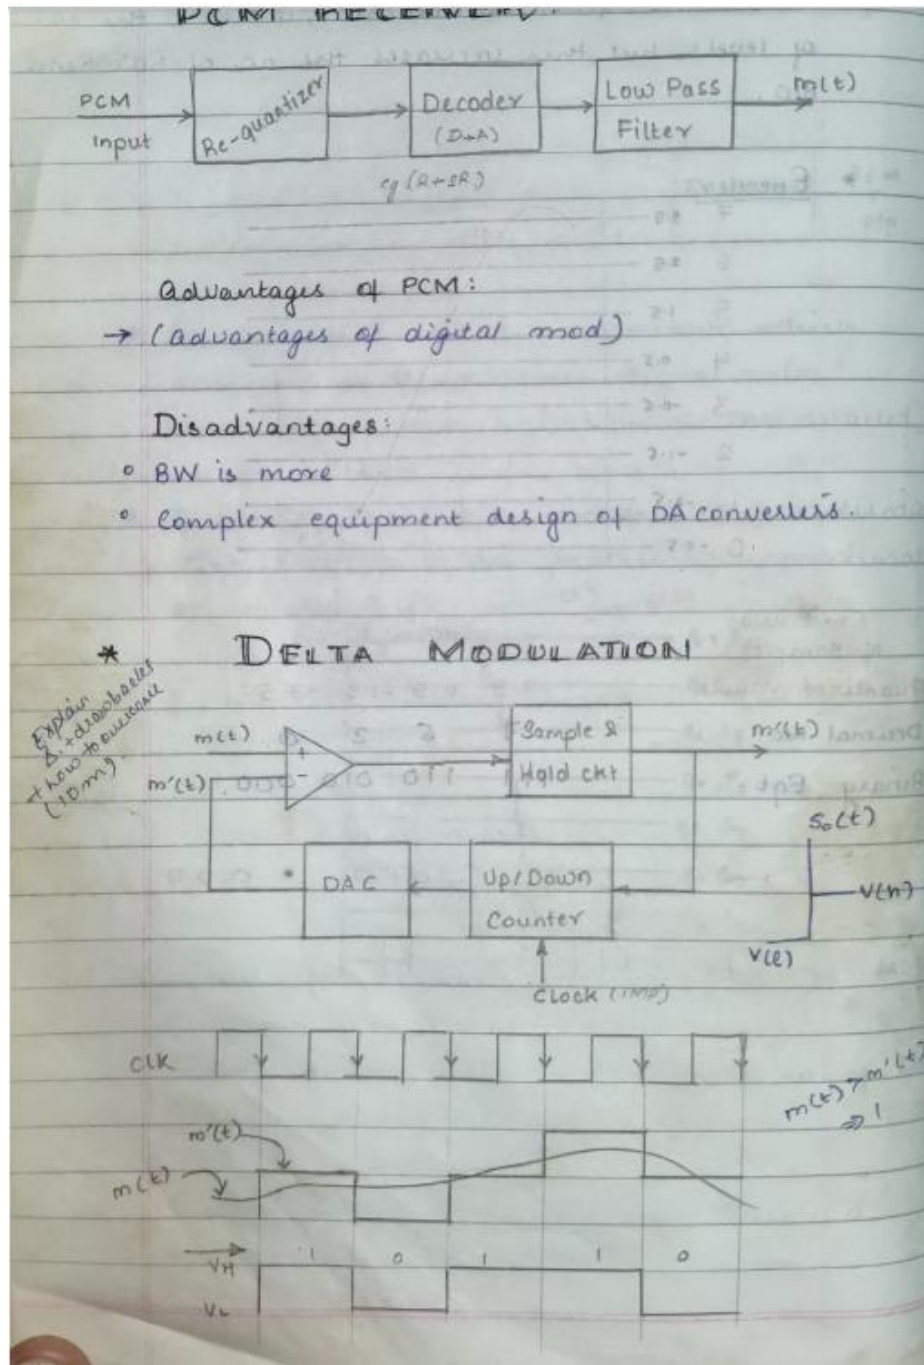 PCM RECEIVER:
PCM
Input
Re-quantizer
Decoder
(D→A)
Low Pass
Filter
m(t)
eg (R-2R)
Advantages of PCM:
→ (advantages of digital mod)
Disadvantages:
° BW is more
° Complex equipment design of DA converters.
* DELTA MODULATION
Explain
+ drawbacks
+ how to overcome
(10m)
m(t)
m'(t)
+
-
Sample &
Hold ckt
DAC
Up/Down
Counter
So(t)
V(h)
V(l)
Clock (IMP)
CLK
m(t) > m'(t)
⇒ 1
m'(t)
m(t)
VH
1 0 1 1 0
VL